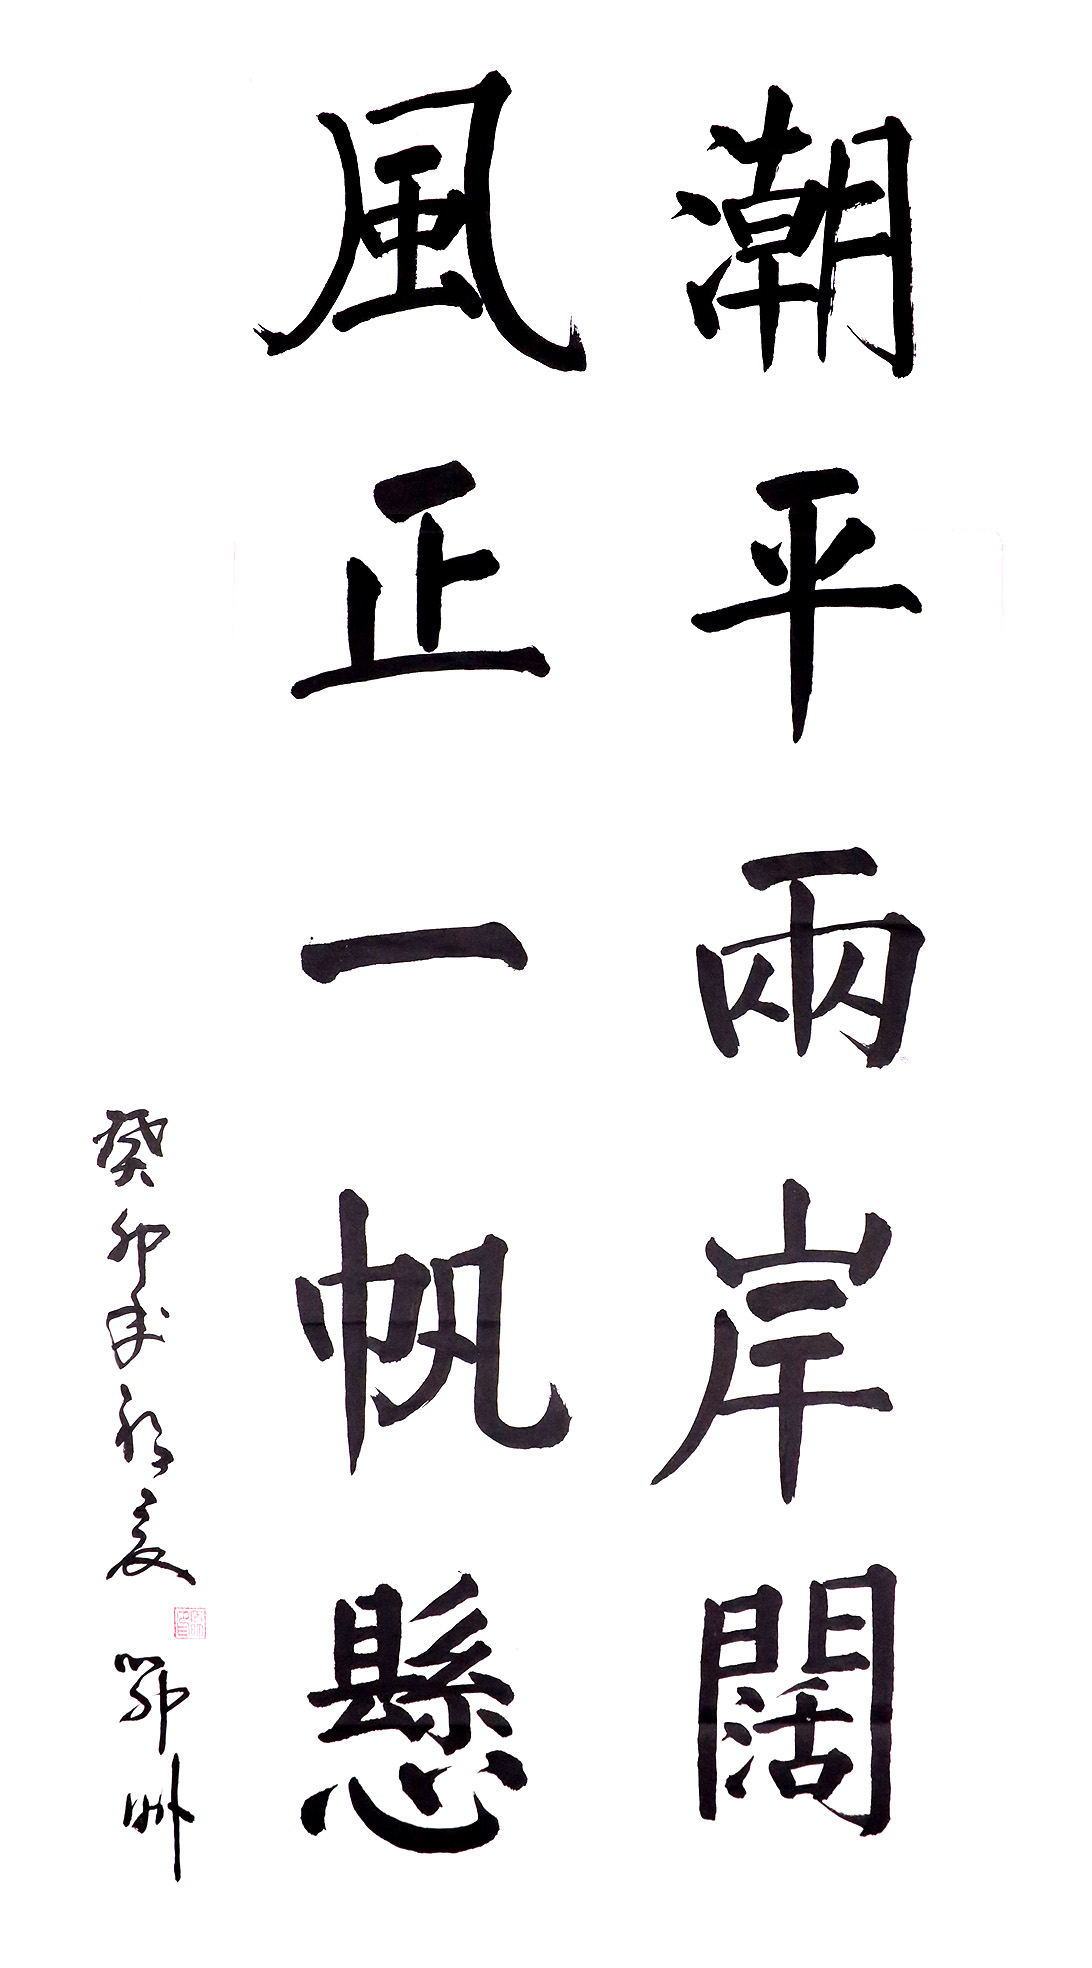 潮平兩岸闊
風正一帆懸
癸卯年初夏 鄂州